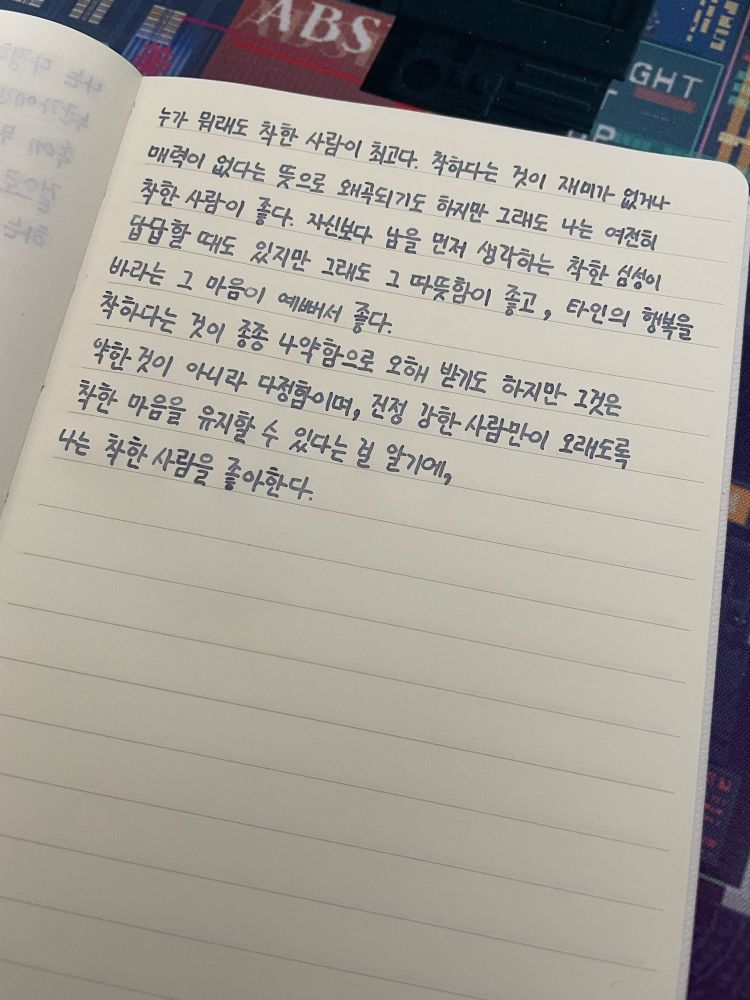 ABS
GHT
누가 뭐래도 착한 사람이 최고다. 착하다는 것이 재미가 없거나
매력이 없다는 뜻으로 왜곡되기도 하지만 그래도 나는 여전히
착한 사람이 좋다. 자신보다 남을 먼저 생각하는 착한 심성이
답답할 때도 있지만 그래도 그 따뜻함이 좋고, 타인의 행복을
바라는 그 마음이 예뻐서 좋다.
착하다는 것이 종종 나약함으로 오해 받기도 하지만 그것은
약한 것이 아니라 다정함이며, 진정 강한 사람만이 오래도록
착한 마음을 유지할 수 있다는 걸 알기에,
나는 착한 사람을 좋아한다.